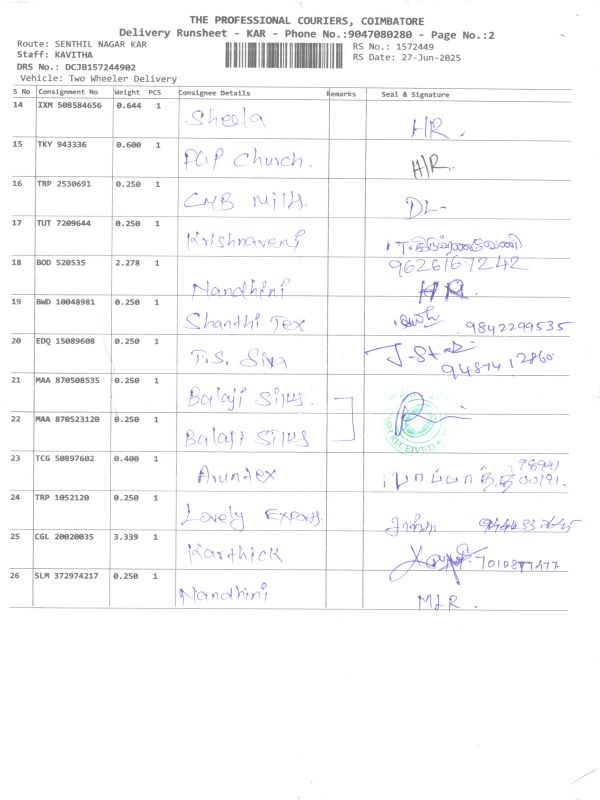 THE PROFESSIONAL COURIERS, COIMBATORE
Delivery Runsheet - KAR - Phone No.:9047080280 - Page No.:2
Route: SENTHIL NAGAR KAR RS No.: 1572449
Staff: KAVITHA RS Date: 27-Jun-2025
DRS No.: DCJB157244902
Vehicle: Two Wheeler Delivery
S No Consignment No Weight PCS Consignee Details Remarks Seal & Signature
14 IXM 508584656 0.644 1 Sheela H/R.
15 TKY 943336 0.600 1 Church. H/R.
16 TRP 2530691 0.250 1 CMB Milk. DL-
17 TUT 7209644 0.250 1 Krishnaveni
9626167242
18 BOD 520535 2.278 1 Nandhini HR.
19 BWD 10048981 0.250 1 Shanthi Tex 9842299535
20 EDQ 15089608 0.250 1 T.S. Siva
21 MAA 870508535 0.250 1 Balaji Silks
22 MAA 870523120 0.250 1 Balaji Silks RECEIVED
23 TCG 50897602 0.400 1 Aruntex
24 TRP 1052120 0.250 1 Lovely Exports
25 CGL 20020035 3.339 1 Karthick 7010877477
26 SLM 372974217 0.250 1 Nandhini MLR.